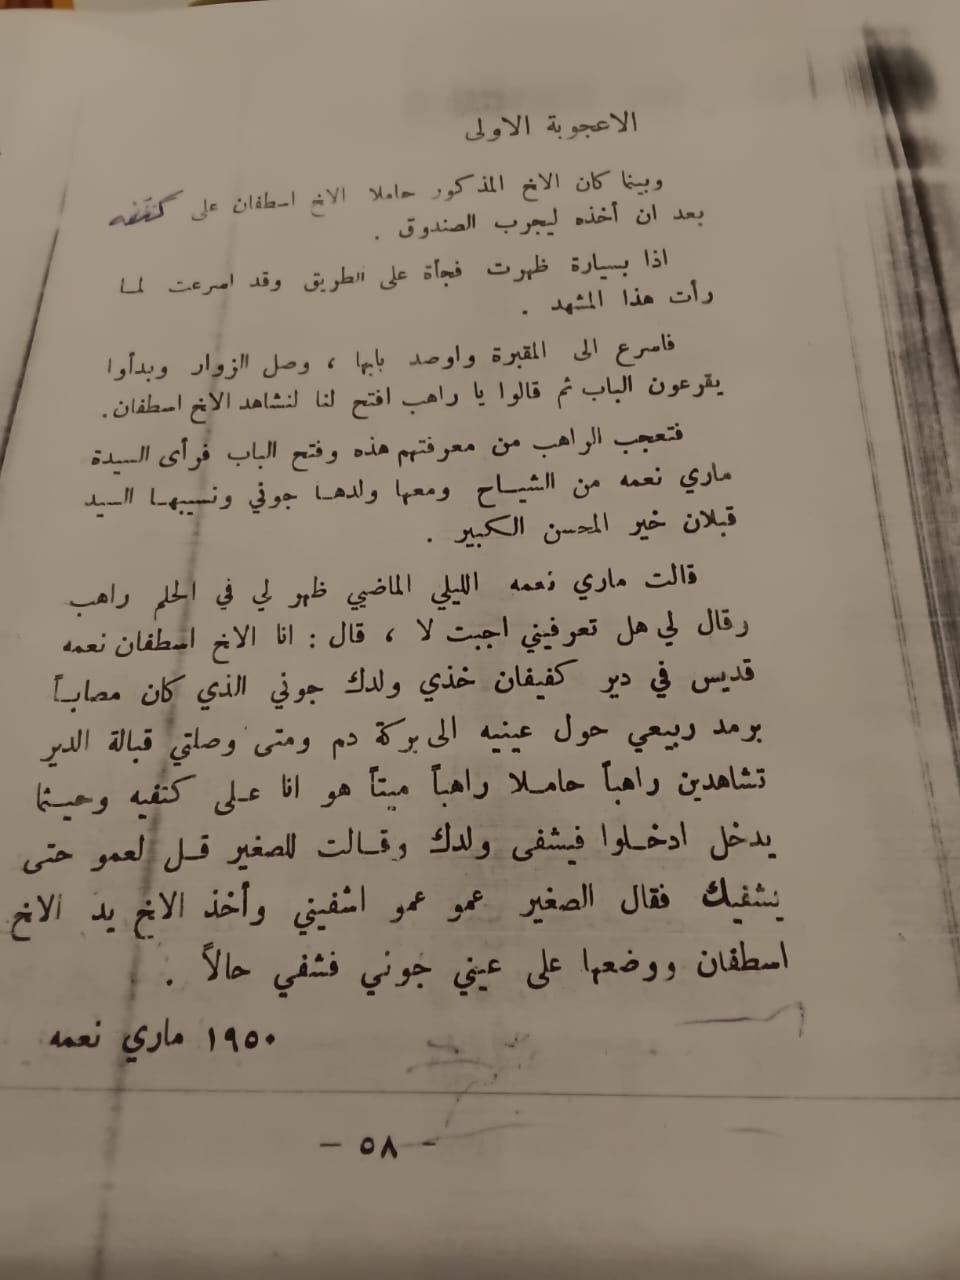 الاعجوبة الاولى
وبينما كان الاخ المذكور حاملا الاخ اسطفان على كتفه
بعد ان أخذه ليجرب الصندوق .
اذا بسيارة ظهرت فجأة على الطريق وقد اسرعت لما
رأت هذا المشهد .
فاسرع الى المقبرة واوصد بابها ، وصل الزوار وبدأوا
يقرعون الباب ثم قالوا يا راهب افتح لنا لنشاهد الاخ اسطفان.
فتعجب الراهب من معرفتهم هذه وفتح الباب فرأى السيدة
ماري نعمه من الشياح ومعها ولدها جوني ونسيبها السيد
قبلان خير المحسن الكبير .
قالت ماري نعمه الليلي الماضي ظهر لي في الحلم راهب
رقال لي هل تعرفيني اجبت لا ، قال : انا الاخ اسطفان نعمه
قديس في دير كفيفان خذي ولدك جوني الذي كان مصاباً
برمد ربيعي حول عينيه الى بركة دم ومتى وصلتي قبالة الدير
تشاهدين راهباً حاملا راهباً ميتاً هو انا على كتفيه وحيثما
يدخل ادخلوا فيشفى ولدك وقالت للصغير قل لعمو حتى
يشفيك فقال الصغير عمو عمو اشفيني وأخذ الاخ يد الاخ
اسطفان ووضعها على عيني جوني فشفي حالاً .
١٩٥٠ ماري نعمه
- ٥٨ -